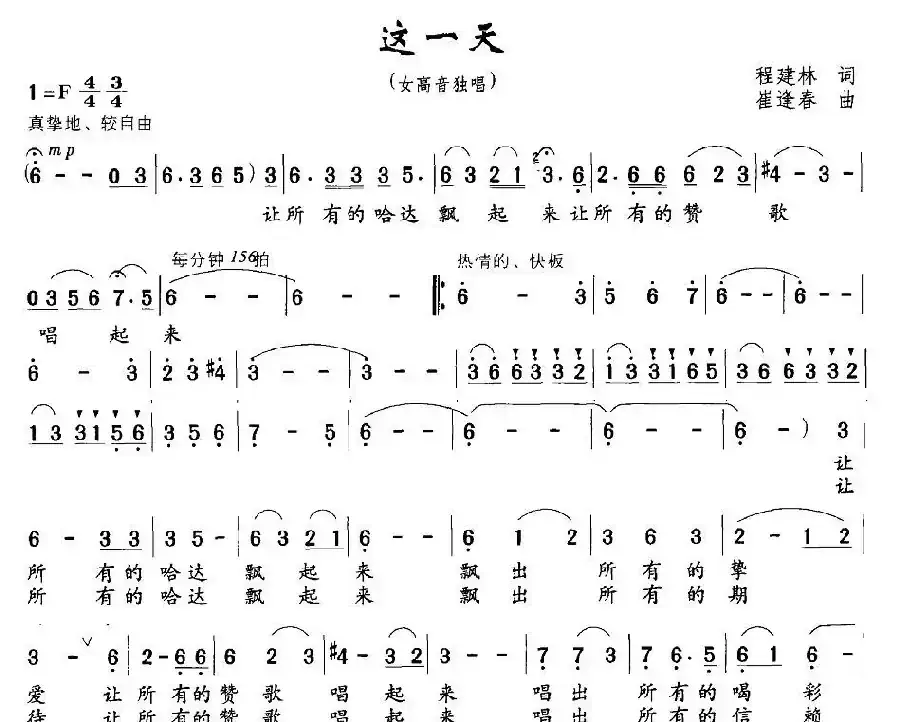 这一天
(女高音独唱)
程建林 词
崔逢春 曲
1=F 4/4 3/4
真挚地、较自由
mp
(6 - - 0 3 | 6. 3 6 5) 3 | 6. 3 3 3 3 5. | 6 3 2 1 3. 6 | 2. 6 6 6 2 3 | #4 - 3 - |
让所有的哈达飘起来让所有的赞歌
每分钟156拍 热情的、快板
0 3 5 6 7. 5 | 6 - - | 6 - - |: 6 - 3 | 5 6 7 | 6 - - | 6 - - |
唱起来
6 - 3 | 2 3 #4 | 3 - - | 3 - - | 3 6 6 3 3 2 | 1 3 3 1 6 5 | 3 6 6 3 3 2 |
1 3 3 1 5 6 | 3 5 6 | 7 - 5 | 6 - - | 6 - - | 6 - - | 6 - ) 3 |
让
让
6 - 3 3 | 3 5 - | 6 3 2 1 | 6 - - | 6 1 2 | 3 6 3 | 2 - 1 2 |
所有的哈达飘起来飘出所有的挚
所有的哈达飘起来飘出所有的期
3 - ∨ 6 | 2 - 6 6 | 6 2 3 | #4 - 3 2 | 3 - - | 7 7 3 | 7 6. 5 | 6 1 6 |
爱让所有的赞歌唱起来唱出所有的喝彩
待让所有的赞歌唱起来唱出所有的信赖